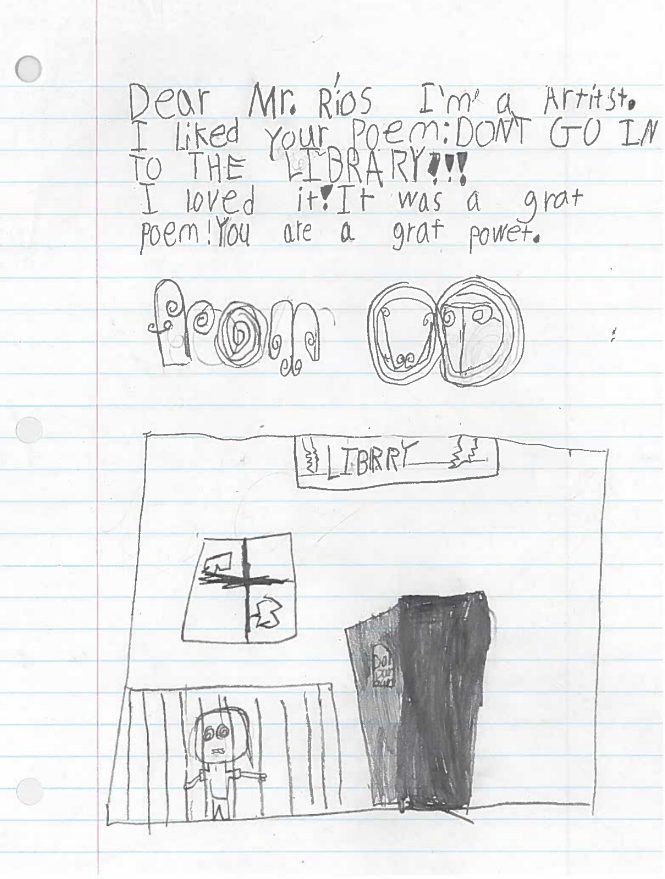 Dear Mr. Ríos I'm a Artitst.
I liked your Poem:DON'T GO IN
TO THE LIBRARY!!!
I loved it!It was a grat
poem!You are a grat powet.
from
LIBRRY